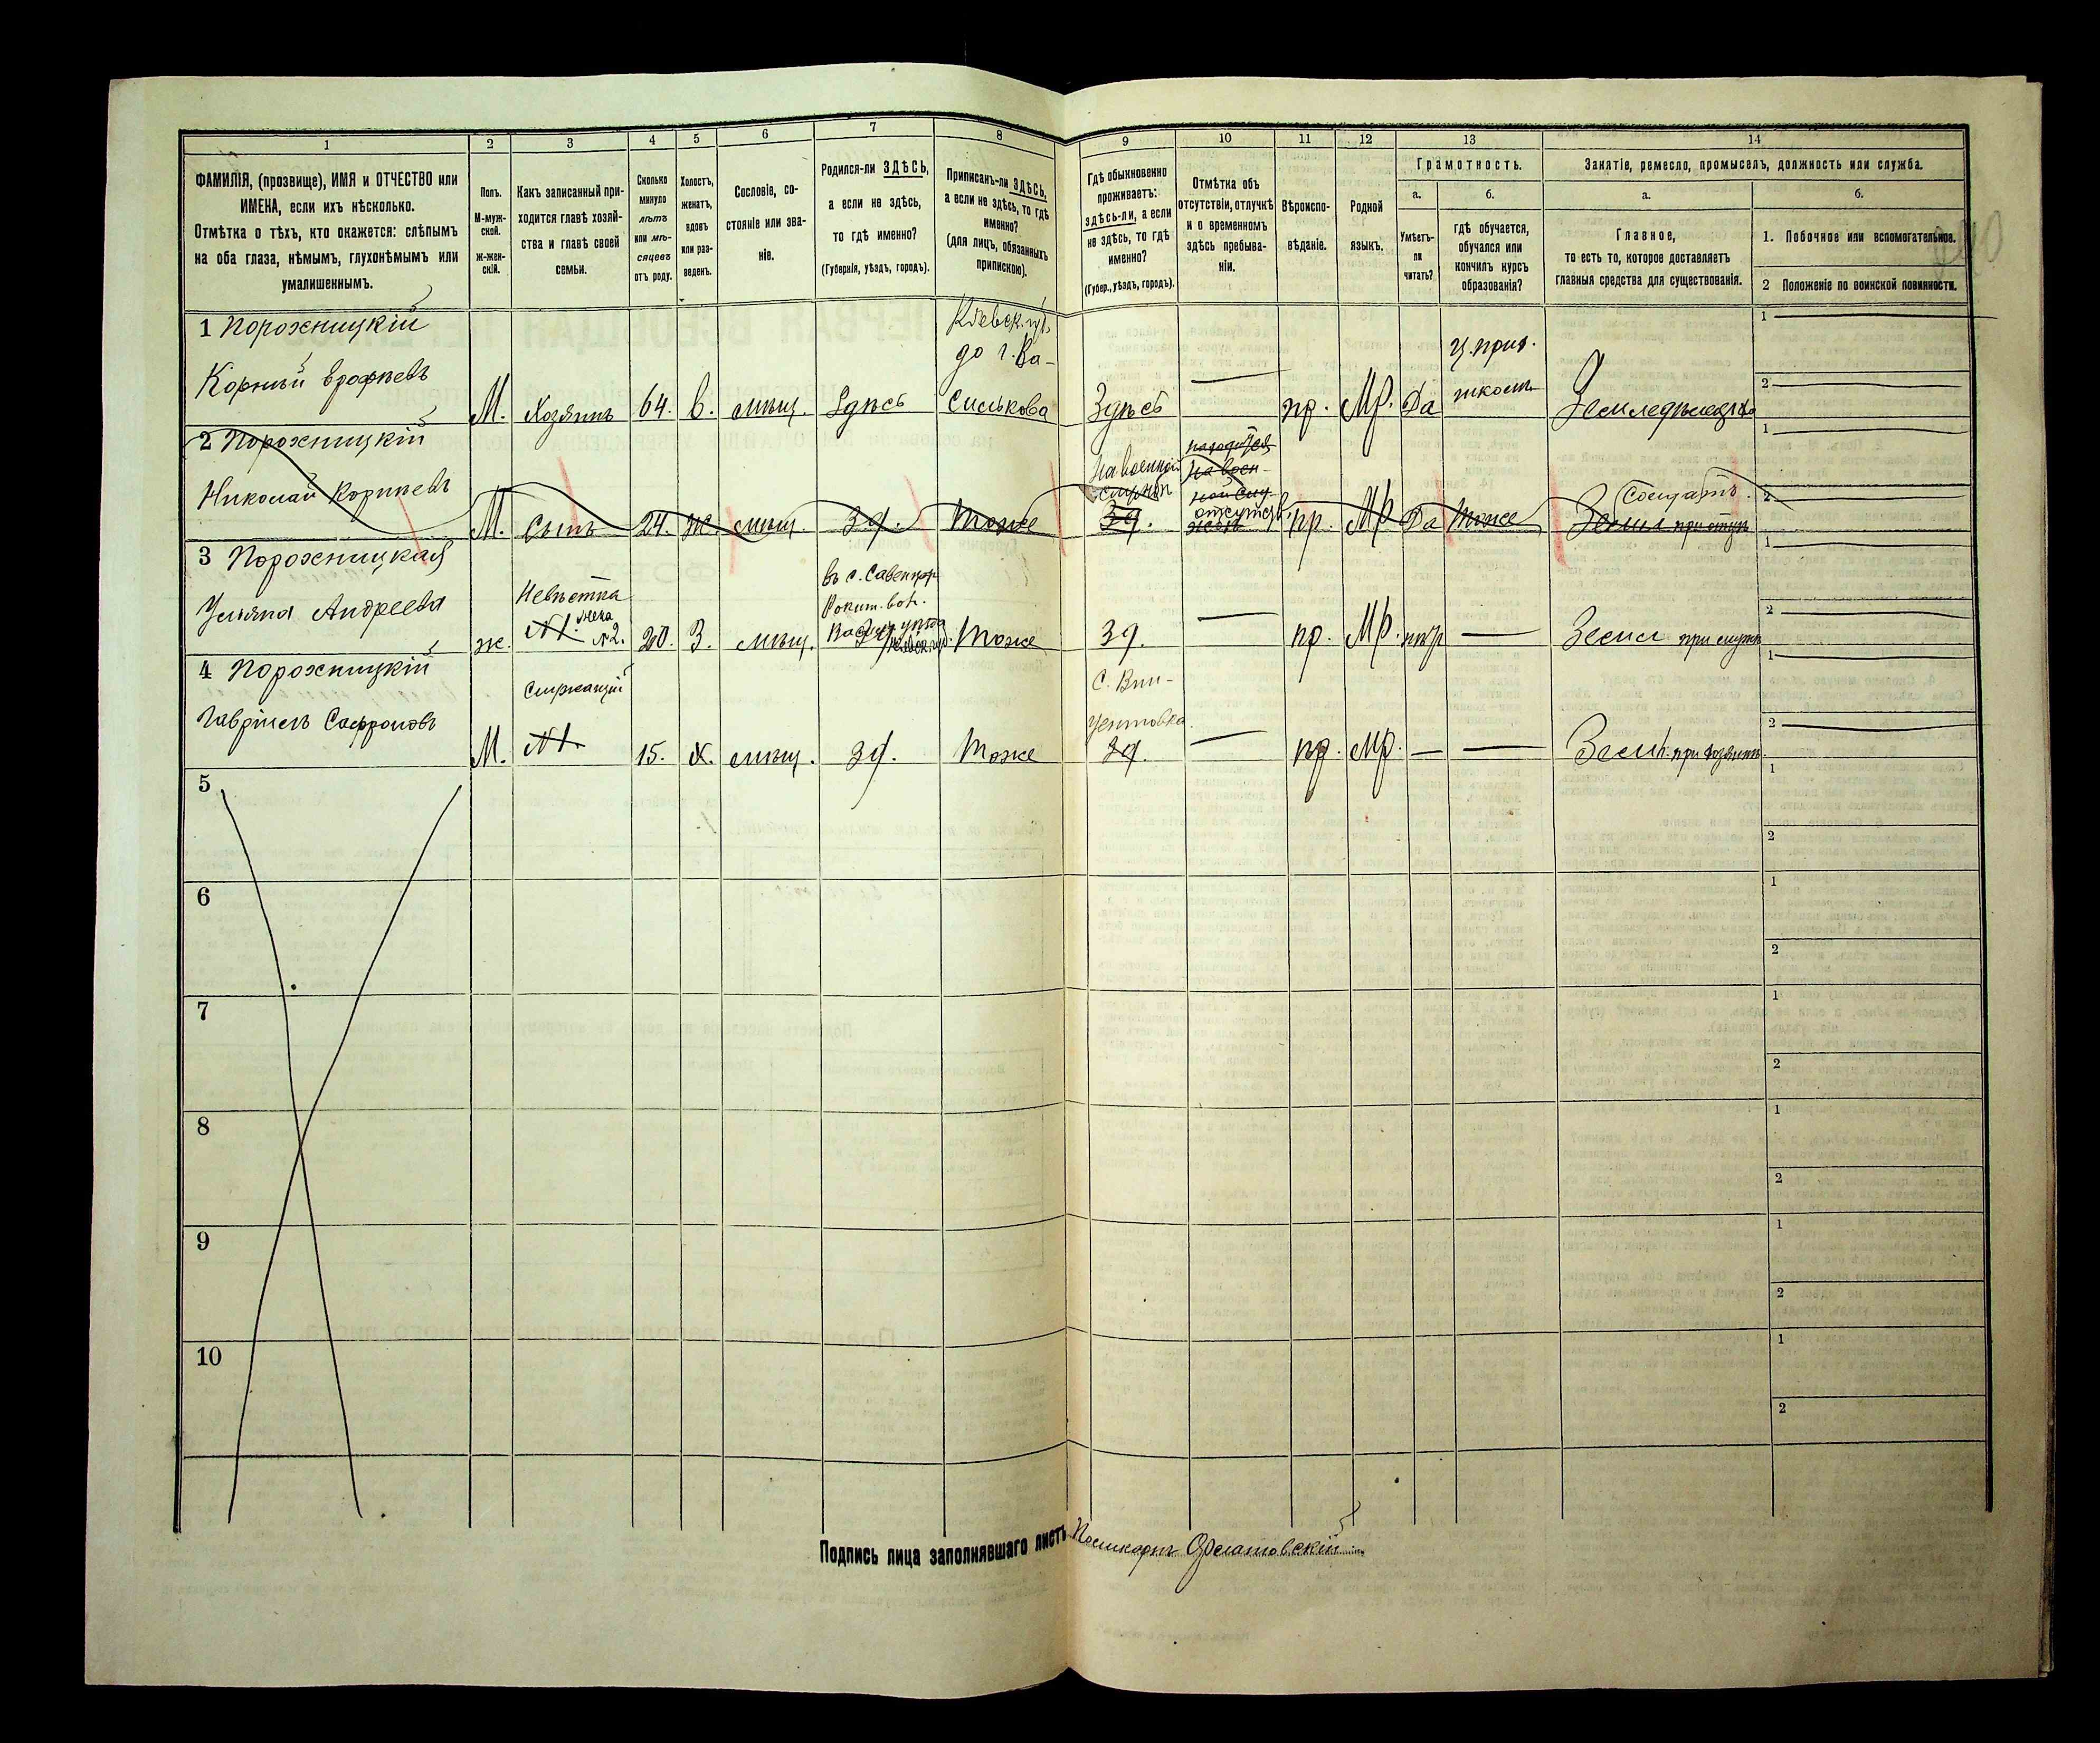 1 2 3 4 5 6 7 8 9 10 11 12 13 14
ФАМИЛІЯ, (прозвище), ИМЯ и ОТЧЕСТВО или
ИМЕНА, если ихъ нѣсколько.
Отмѣтка о тѣхъ, кто окажется: слѣпымъ
на оба глаза, нѣмымъ, глухонѣмымъ или
умалишеннымъ.
Полъ.
М-муж-
ской.
Ж-жен-
скій.
Какъ записанный при-
ходится главѣ хозяй-
ства и главѣ своей
семьи.
Сколько
минуло
лѣтъ
или мѣ-
сяцевъ
отъ роду.
Холостъ,
женатъ,
вдовъ
или раз-
веденъ.
Сословіе, со-
стояніе или зва-
ніе.
Родился-ли ЗДѢСЬ,
а если не здѣсь,
то гдѣ именно?
(Губернія, уѣздъ, городъ).
Приписанъ-ли ЗДѢСЬ,
а если не здѣсь, то гдѣ
именно?
(для лицъ, обязанныхъ
припискою).
Гдѣ обыкновенно
проживаетъ:
здѣсь-ли, а если
не здѣсь, то гдѣ
именно?
(Губер., уѣздъ, городъ).
Отмѣтка объ
отсутствіи, отлучкѣ
и о временномъ
здѣсь пребыва-
ніи.
Вѣроиспо-
вѣданіе.
Родной
языкъ.
Грамотность.
а.
Умѣетъ-
ли
читать?
б.
гдѣ обучается,
обучался или
кончилъ курсъ
образованія?
Занятіе, ремесло, промыселъ, должность или служба.
а.
Главное,
то есть то, которое доставляетъ
главныя средства для существованія.
б.
1. Побочное или вспомогательное.
2 Положеніе по воинской повинности.
1 Порохницкій
Корній Ерофѣевъ
М. Хозяинъ 64. в. мѣщ. Здѣсь
Кіевск. губ.
до г. Ва-
силькова
Здѣсь — пр. Мр. Да
Земледѣлецъ
1
2
2 Порохницкій
Николай Корнѣевъ
М. Сынъ 24. Ж. мѣщ. Зд. Тоже
На военной
службѣ
Зд.
находится
на воен-
ной слу.
пр. Мр. Да Тоже
Солдатъ.
1
2
3 Порохницкая
Ульяна Андреева
ж.
Невѣстка
№1. жена
№2.
20. З. мѣщ.
Тоже
Зд. — пр. Мр. —
1
2
4 Порохницкій
Гавріилъ Сафроновъ
М.
Служащій
№1.
15. Х. мѣщ. Зд. Тоже
С. Вин-
центовка
Зд. — пр. Мр. — —
Земл. при хозяинѣ
1
2
5
1
2
6
1
2
7
1
2
8
1
2
9
1
2
10
1
2
Подпись лица заполнявшаго листъ